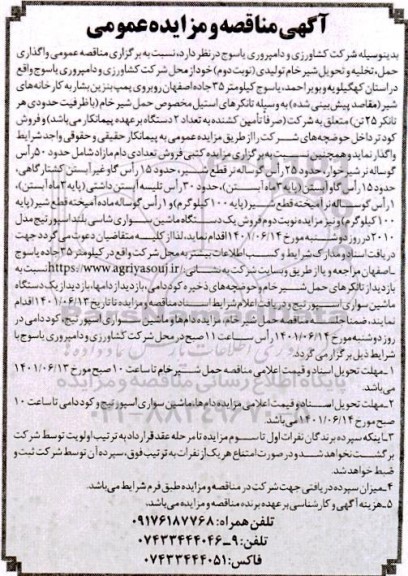 آگهی مناقصه و مزایده عمومی
بدینوسیله شرکت کشاورزی و دامپروری یاسوج در نظر دارد، نسبت به برگزاری مناقصه عمومی واگذاری
حمل، تخلیه و تحویل شیر خام تولیدی (نوبت دوم) خود از محل شرکت کشاورزی و دامپروری یاسوج واقع
در استان کهگیلویه و بویراحمد، یاسوج کیلومتر ۳۵ جاده اصفهان روبروی پمپ بنزین بشار به کارخانه های
شیر (مقاصد پیش بینی شده) به وسیله تانکر های استیل مخصوص حمل شیر خام (با ظرفیت حدودی هر
تانکر ۲۵ تن) متعلق به شرکت (صرفا تأمین کشنده به تعداد ۲ دستگاه بر عهده پیمانکار می باشد) و فروش
کود تر داخل حوضچه های شرکت را از طریق مزایده عمومی به پیمانکار حقیقی و حقوقی واجد شرایط
واگذار نماید و همچنین نسبت به برگزاری مزایده کتبی فروش تعدادی دام مازاد شامل حدود ۵۰ رأس
گوساله نر شیر خوار، حدود ۲۵ رأس گوساله نر قطع شیر، حدود ۱۵ رأس گاو غیر آبستن کشتارگاهی،
حدود ۱۵ رأس گاو آبستن (پایه ۳ ماه آبستن)، حدود ۳۰ رأس تلیسه آبستن داشتی (پایه ۳ ماه آبستن)،
۱ رأس گوساله نر آمیخته قطع شیر (پایه ۱۰۰ کیلوگرم) و ۱ رأس گوساله ماده آمیخته قطع شیر (پایه
۱۰۰ کیلوگرم) و نیز مزایده نوبت دوم فروش یک دستگاه ماشین سواری شاسی بلند اسپورتیج مدل
۲۰۱۰ در روز دوشنبه مورخ ۱۴۰۱/۰۶/۱۴ اقدام نماید، لذا از کلیه متقاضیان دعوت می گردد جهت
دریافت اسناد و مدارک شرایط و کسب اطلاعات بیشتر به محل شرکت واقع در کیلومتر ۳۵ جاده یاسوج
-اصفهان مراجعه و یا از طریق وبسایت شرکت به نشانی: https://www.agriyasouj.ir نسبت به
بازدید از تانکر های حمل شیر خام و حوضچه های ذخیره کود دامی، بازدید از دامها، بازدید از یک دستگاه
ماشین سواری اسپورتیج و دریافت اعلام شرایط اسناد مناقصه و مزایده تا تاریخ ۱۴۰۱/۰۶/۱۳ اقدام
نمایند، ضمنا جلسه مناقصه حمل شیر خام، مزایده دام ها و ماشین سواری اسپورتیج، کود دامی در
روز دوشنبه مورخ ۱۴۰۱/۰۶/۱۴ رأس ساعت ۱۱ صبح در محل شرکت کشاورزی و دامپروری یاسوج با
شرایط ذیل برگزار می گردد:
۱-مهلت تحویل اسناد و قیمت اعلامی مناقصه حمل شیر خام تا ساعت ۱۰ صبح مورخ ۱۴۰۱/۰۶/۱۳
می باشد.
۲-مهلت تحویل اسناد و قیمت اعلامی مزایده دام ها، ماشین سواری اسپورتیج و کود دامی تا ساعت ۱۰
صبح مورخ ۱۴۰۱/۰۶/۱۴ می باشد.
۳-اینکه سپرده برندگان نفرات اول تا سوم مزایده تا مرحله عقد قرارداد به ترتیب اولویت توسط شرکت
برگشت نخواهد شد و در صورت امتناع هر یک از نفرات به ترتیب فوق، سپرده آن توسط شرکت ثبت و
ضبط خواهد شد.
۴-میزان سپرده دریافتی جهت شرکت در مناقصه و مزایده طبق فرم شرایط می باشد.
۵-هزینه آگهی و کارشناسی بر عهده برنده مناقصه و مزایده می باشد.
تلفن همراه: ۰۹۱۷۶۱۸۷۷۶۸
تلفن: ۹-۰۷۴۳۳۴۴۴۰۴۶
فاکس: ۰۷۴۳۳۴۴۴۰۵۱
ParsNamadData
پایگاه اطلاع رسانی مناقصه و مزایده
۰۲۱-۸۸۳۴۹۶۷۰-۵